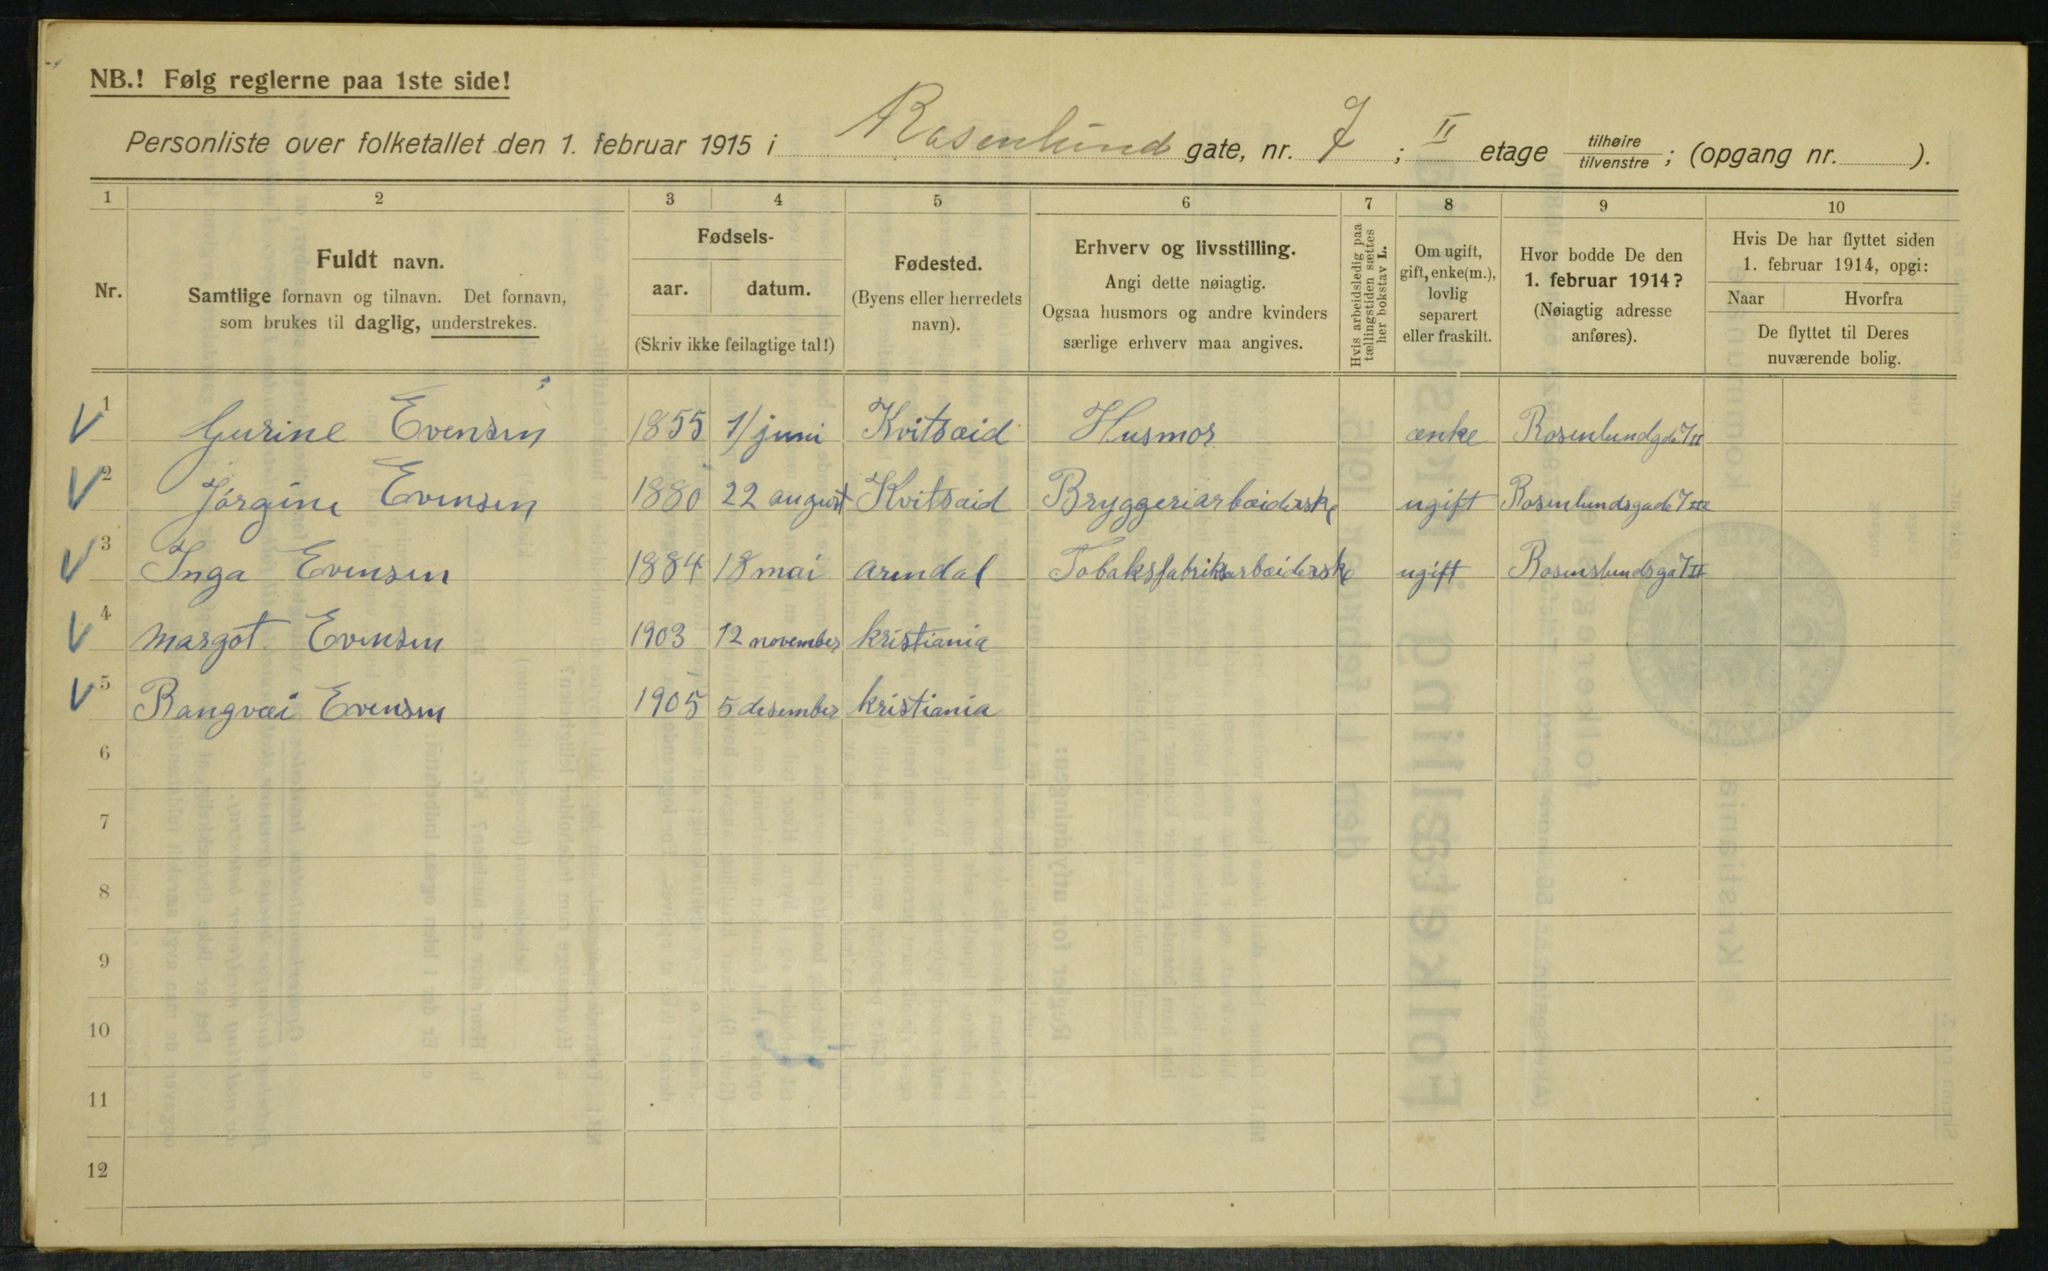 NB.! Følg reglerne paa 1ste side!
Personliste over folketallet den 1. februar 1915 i Rosenlund gate, nr. 7 ; II etage tilhøire/tilvenstre ; (opgang nr. ).
1 2 3 4 5 6 7 8 9 10
Nr.
Fuldt navn.
Samtlige fornavn og tilnavn. Det fornavn,
som brukes til daglig, understrekes.
Fødsels-
aar. datum.
(Skriv ikke feilagtige tal!)
Fødested.
(Byens eller herredets
navn).
Erhverv og livsstilling.
Angi dette nøiagtig.
Ogsaa husmors og andre kvinders
særlige erhverv maa angives.
Hvis arbeidsledig paa
tællingstiden sættes
her bokstav L.
Om ugift,
gift, enke(m.),
lovlig
separert
eller fraskilt.
Hvor bodde De den
1. februar 1914?
(Nøiagtig adresse
anføres).
Hvis De har flyttet siden
1. februar 1914, opgi:
Naar Hvorfra
De flyttet til Deres
nuværende bolig.
1 Gurine Evensen 1855 1/ juni Kvitseid Husmor enke Rosenlundgd 7 II
2 Jørgine Evensen 1880 22 august Kvitseid Bryggeriarbeiderske ugift Rosenlundsgade 7 II
3 Inga Evensen 1884 18 mai arendal Tobaksfabriksarbeiderske ugift Rosenslundsga 7 II
4 Margot Evensen 1903 12 november kristiania
5 Rangvæi Evensen 1905 5 desember kristiania
6
7
8
9
10
11
12